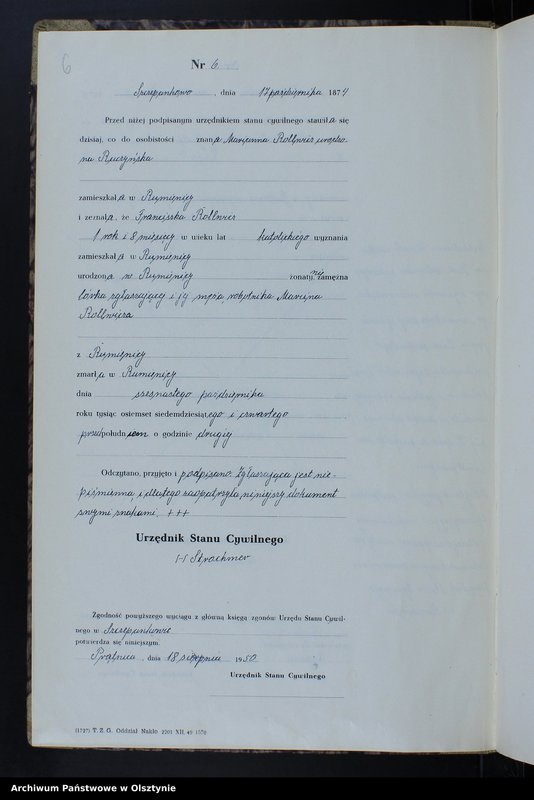 6
Nr 6
Szczepankowo, dnia 17 października 1874
Przed niżej podpisanym urzędnikiem stanu cywilnego stawiła się
dzisiaj, co do osobistości znana Marianna urodzo-
na
zamieszkała w Rumienicy
i zeznała, że Franciszka
1 rok i 8 miesięcy w wieku lat katolickiego wyznania
zamieszkała w Rumienicy
urodzona w Rumienicy żonaty, niezamężna
córka zgłaszającej i jej męża robotnika Marcina
z Rumienicy
zmarła w Rumienicy
dnia szesnastego października
roku tysiąc osiemset siedemdziesiątego i czwartego
przedpołudniem o godzinie drugiej
Odczytano, przyjęto i podpisano. Zgłaszająca jest nie-
piśmienna i dlatego zaopatrzyła niniejszy dokument
swymi znakami. +++
Urzędnik Stanu Cywilnego
/-/
Zgodność powyższego wyciągu z główną księgą zgonów Urzędu Stanu Cywil-
nego w Szczepankowie
potwierdza się niniejszym.
Prątnica, dnia 18 sierpnia 1950
Urzędnik Stanu Cywilnego
(1727) T. Z. G. Oddział Nakło 2201 XII. 49 1570
Archiwum Państwowe w Olsztynie